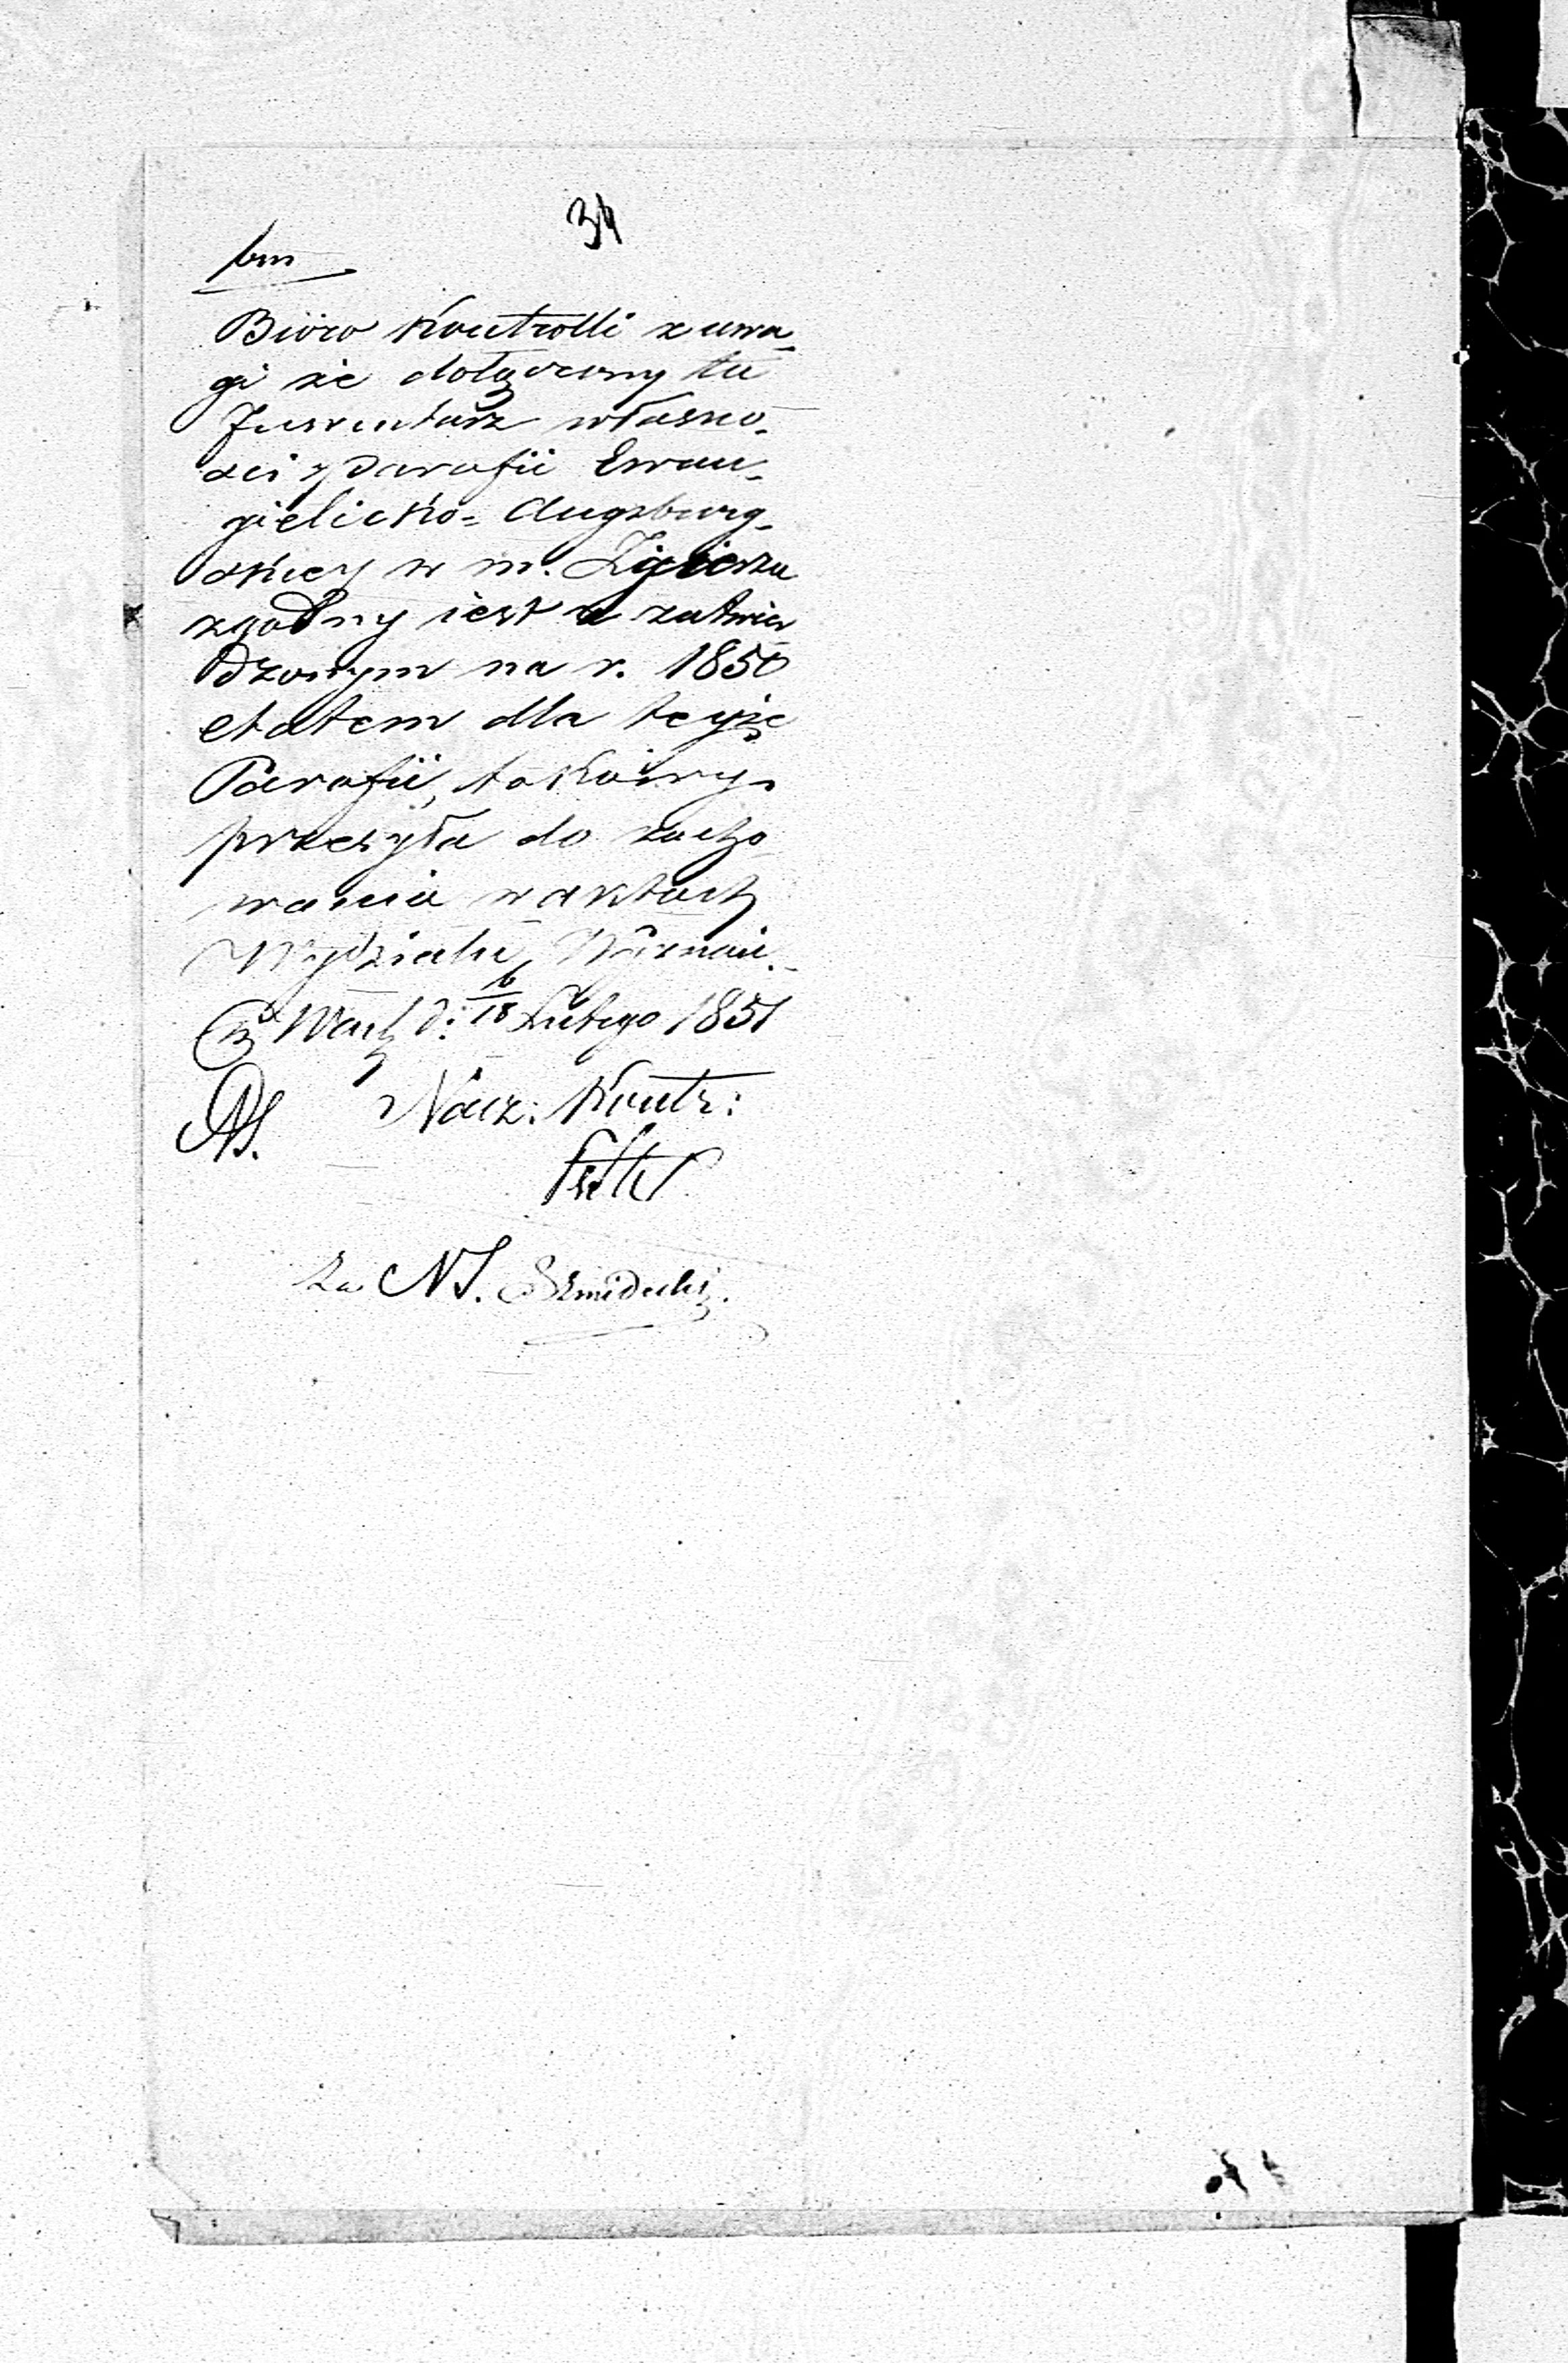 34
bm
Bióro Kontrolli z uwa-
gi że dołączony tu
Inwentarz własno-
ści Parafii Ewan-
gielicko= Augsburg-
skiey w m. Zgierzu
zgodny iest z zatwier
dzonym na r. 1850
etatem dla teyże
Parafii, takowy
przesyła do zacho
wania w aktach
Wydziału Wyznań.
w Warsz d: 6/18 Lutego 1851
NS. Nacz: Kontr:
Za NS. Szmidecki.